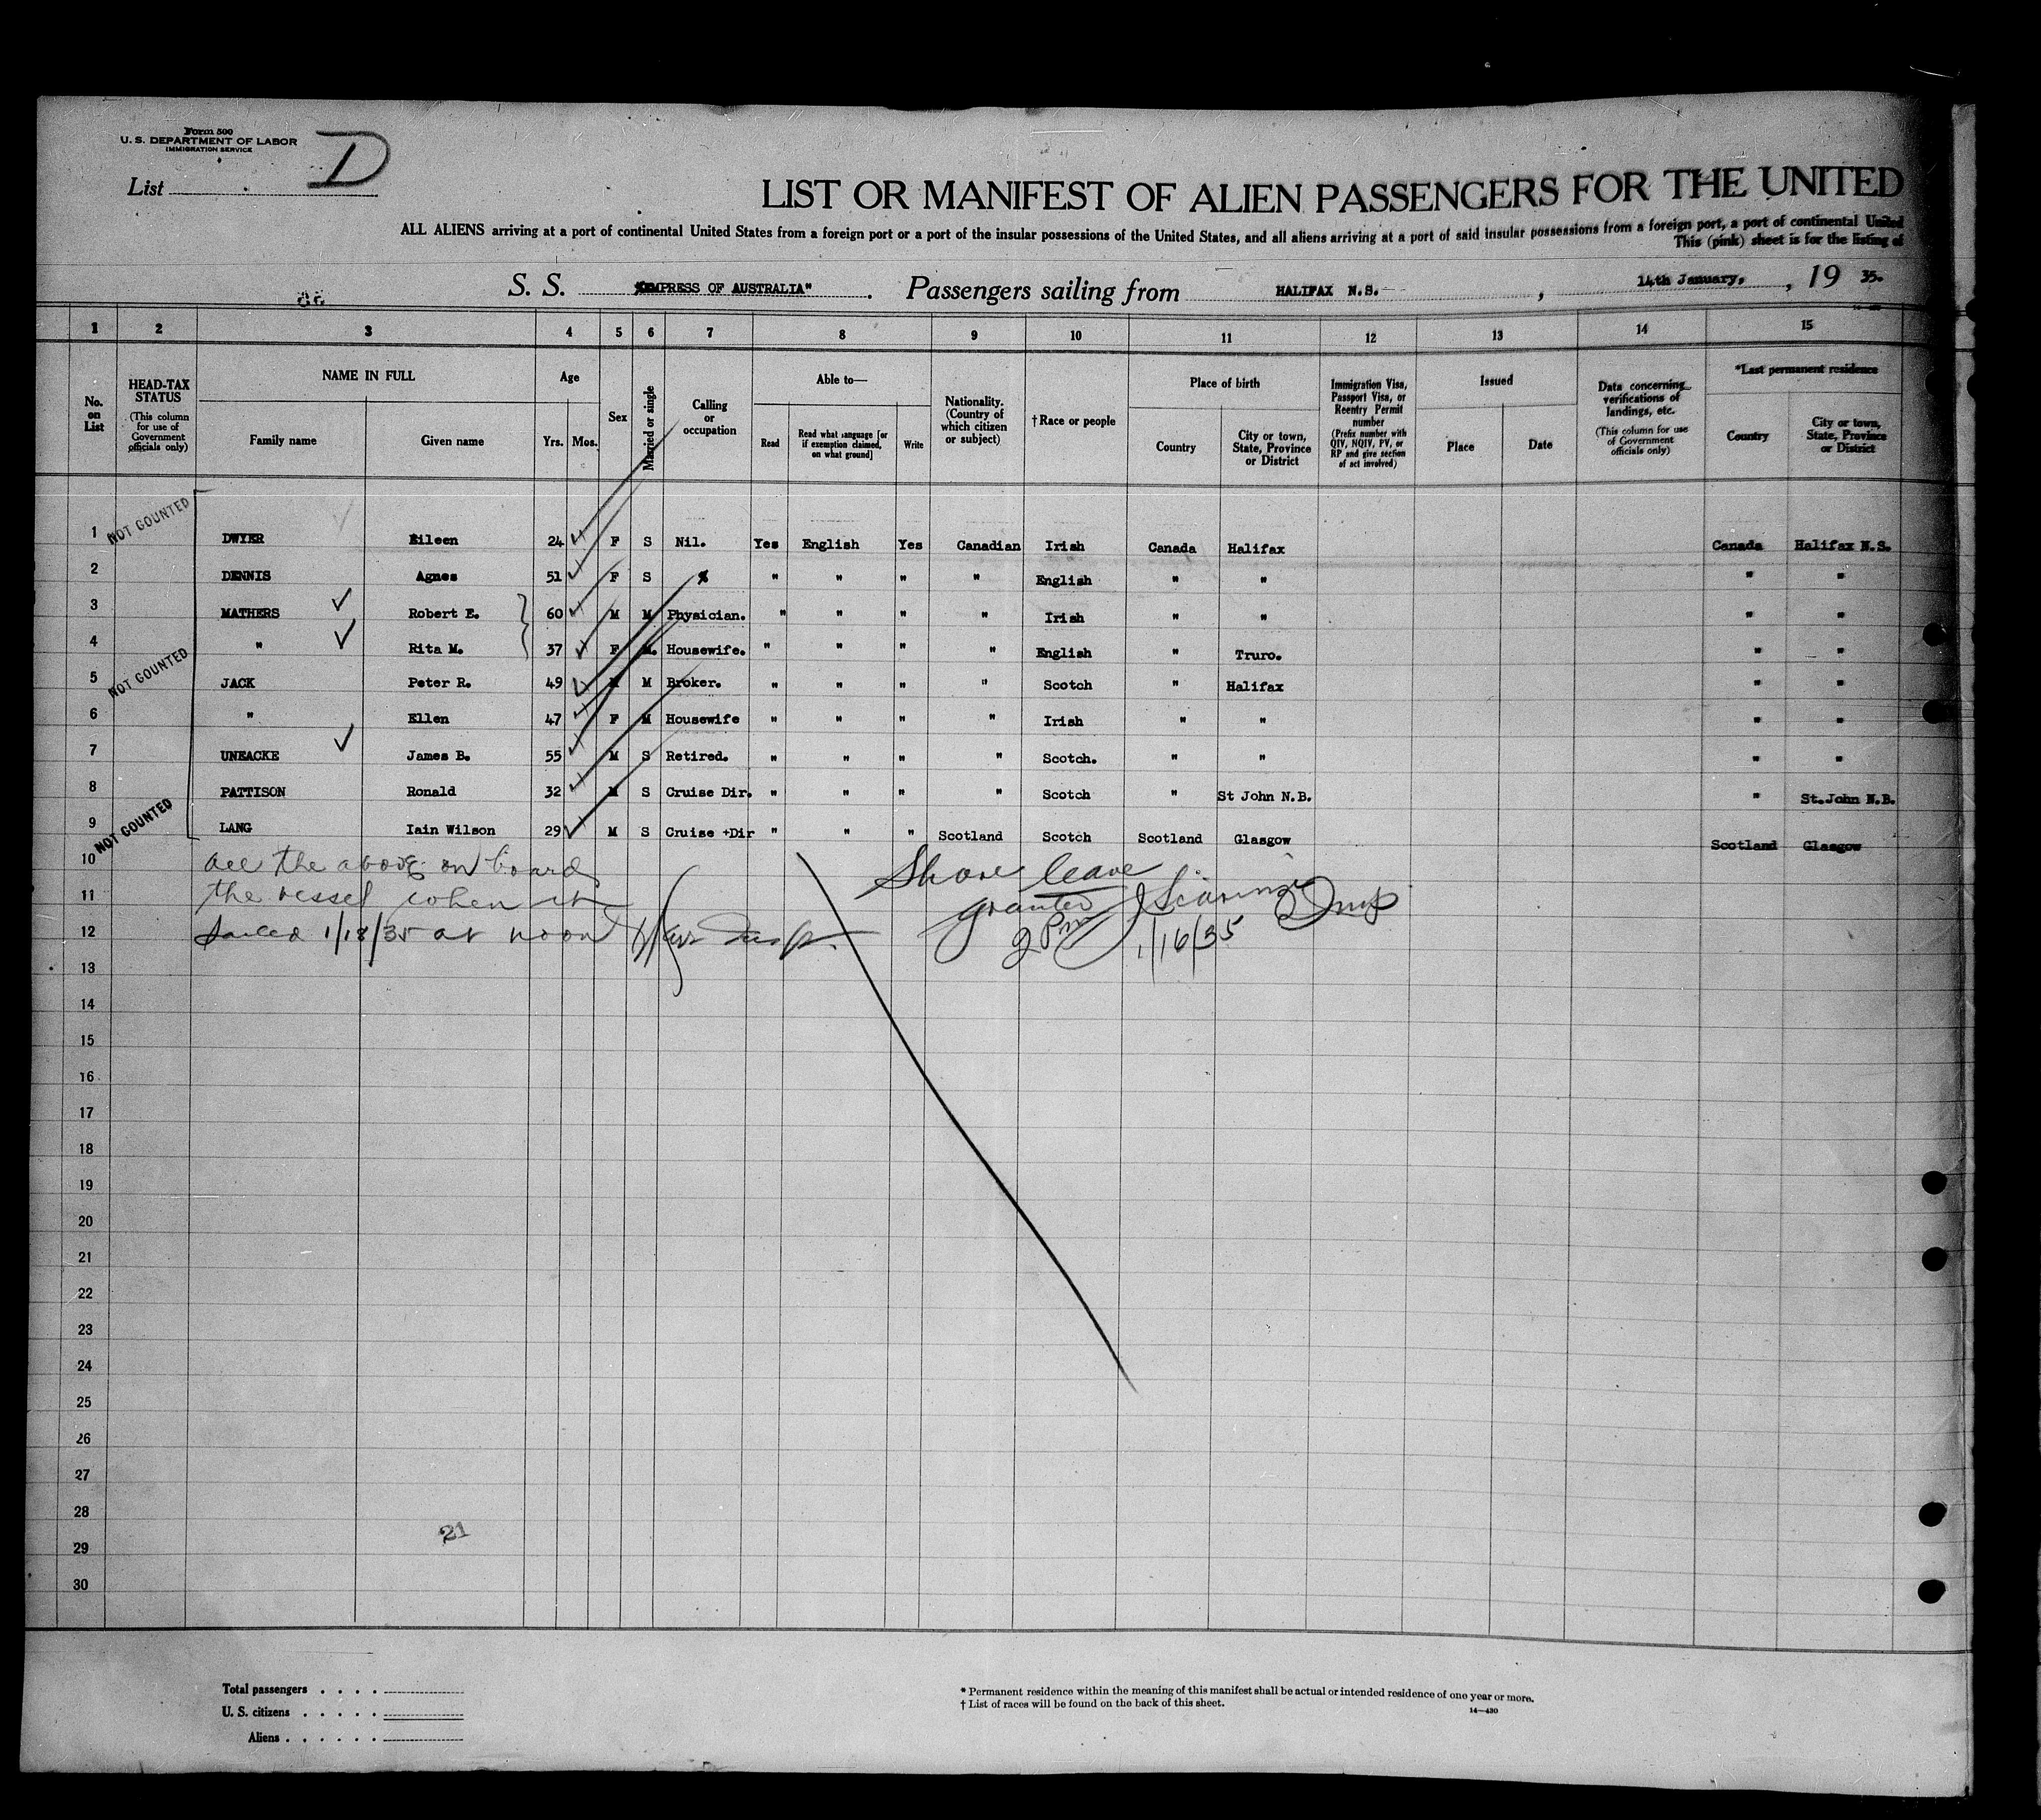 Form 500
U. S. DEPARTMENT OF LABOR
IMMIGRATION SERVICE
D
List
LIST OR MANIFEST OF ALIEN PASSENGERS FOR THE UNITED
ALL ALIENS arriving at a port of continental United States from a foreign port or a port of the insular possessions of the United States, and all aliens arriving at a port of said insular possessions from a foreign port, a port of continental United
This (pink) sheet is for the listing of
S. S. "EMPRESS OF AUSTRALIA" . Passengers sailing from HALIFAX N.S. , 14th January, , 19 35.
1 2 3 4 5 6 7 8 9 10 11 12 13 14 15
No. on List
HEAD-TAX STATUS
(This column for use of Government officials only)
NAME IN FULL
Family name Given name
Age
Yrs. Mos.
Sex
Married or single
Calling or occupation
Able to—
Read
Read what language [or if exemption claimed, on what ground]
Write
Nationality. (Country of which citizen or subject)
†Race or people
Place of birth
Country
City or town, State, Province or District
Immigration Visa, Passport Visa, or Reentry Permit number
(Prefix number with QIV, NQIV, PV, or RP and give section of act involved)
Issued
Place Date
Data concerning verifications of landings, etc.
(This column for use of Government officials only)
*Last permanent residence
Country
City or town, State, Province or District
NOT COUNTED
1 DWYER Eileen 24 F S Nil. Yes English Yes Canadian Irish Canada Halifax Canada Halifax N.S.
2 DENNIS Agnes 51 F S " " " " English " " " "
3 MATHERS Robert E. 60 M M Physician. " " " " Irish " " " "
4 " Rita M. 37 F M. Housewife. " " " " English " Truro. " "
NOT COUNTED
5 JACK Peter R. 49 M M Broker. " " " " Scotch " Halifax " "
6 " Ellen 47 F M Housewife " " " " Irish " " " "
7 UNEACKE James B. 55 M S Retired. " " " " Scotch. " " " "
8 PATTISON Ronald 32 M S Cruise Dir. " " " " Scotch " St John N.B. " St.John N.B.
NOT COUNTED
9 LANG Iain Wilson 29 M S Cruise +Dir " " " Scotland Scotch Scotland Glasgow Scotland Glasgow
10 all the above on board Shore leave
11 the vessel when it granted Insp
12 sailed 1/18/35 at noon Insp. 2 Pm 1/16/35
13
14
15
16
17
18
19
20
21
22
23
24
25
26
27
28
21
29
30
Total passengers . . . .
U. S. citizens . . . . .
Aliens . . . . . .
* Permanent residence within the meaning of this manifest shall be actual or intended residence of one year or more.
† List of races will be found on the back of this sheet.
14—430